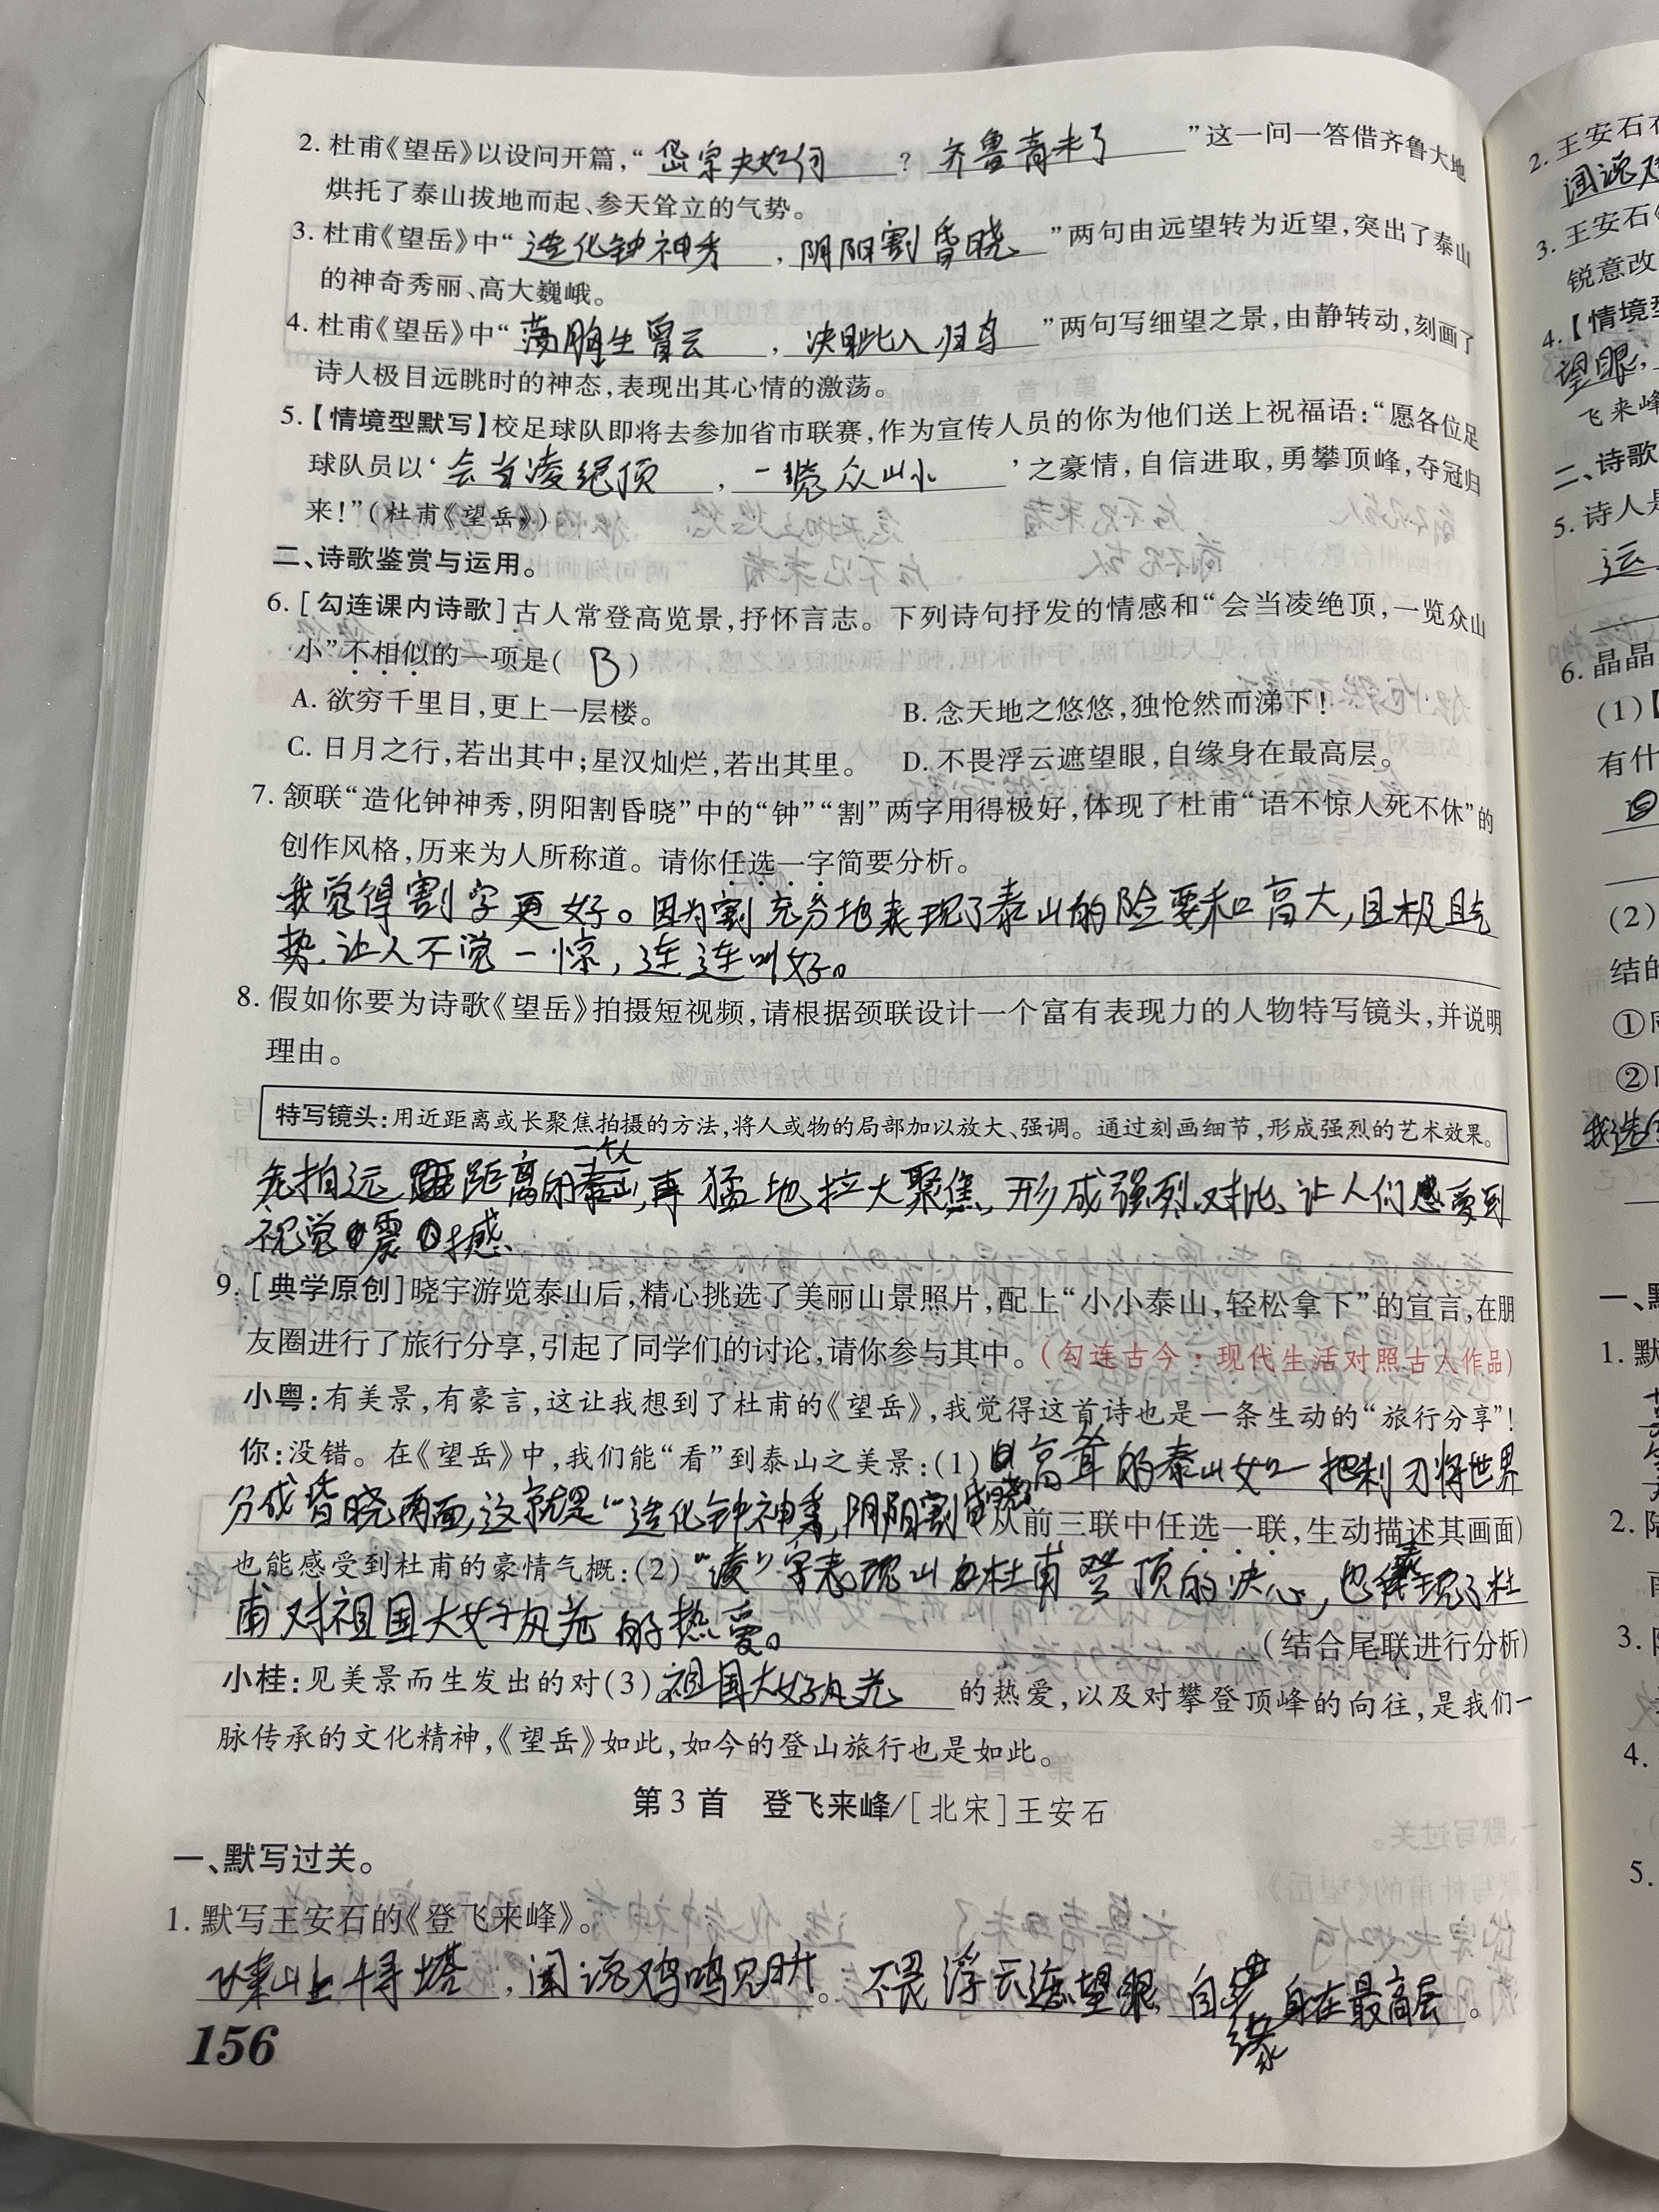 2. 杜甫《望岳》以设问开篇,“岱宗夫如何?齐鲁青未了”这一问一答借齐鲁大地
烘托了泰山拔地而起、参天耸立的气势。
3. 杜甫《望岳》中“造化钟神秀,阴阳割昏晓”两句由远望转为近望,突出了泰山
的神奇秀丽、高大巍峨。
4. 杜甫《望岳》中“荡胸生曾云,决眦入归鸟”两句写细望之景,由静转动,刻画了
诗人极目远眺时的神态,表现出其心情的激荡。
5.【情境型默写】校足球队即将去参加省市联赛,作为宣传人员的你为他们送上祝福语:“愿各位足
球队员以‘会当凌绝顶,一览众山小’之豪情,自信进取,勇攀顶峰,夺冠归
来!”(杜甫《望岳》)
二、诗歌鉴赏与运用。
6. [勾连课内诗歌]古人常登高览景,抒怀言志。下列诗句抒发的情感和“会当凌绝顶,一览众山
小”不相似的一项是( B )
A. 欲穷千里目,更上一层楼。 B. 念天地之悠悠,独怆然而涕下!
C. 日月之行,若出其中;星汉灿烂,若出其里。 D. 不畏浮云遮望眼,自缘身在最高层。
7. 颔联“造化钟神秀,阴阳割昏晓”中的“钟”“割”两字用得极好,体现了杜甫“语不惊人死不休”的
创作风格,历来为人所称道。请你任选一字简要分析。
我觉得割字更好。因为割充分地表现了泰山的险要和高大,且极具气
势,让人不觉一惊,连连叫好。
8. 假如你要为诗歌《望岳》拍摄短视频,请根据颈联设计一个富有表现力的人物特写镜头,并说明
理由。
特写镜头:用近距离或长聚焦拍摄的方法,将人或物的局部加以放大、强调。通过刻画细节,形成强烈的艺术效果。
先拍远距离的泰山,再猛地拉大聚焦,形成强烈对比,让人们感受到
视觉震撼
9. [典学原创]晓宇游览泰山后,精心挑选了美丽山景照片,配上“小小泰山,轻松拿下”的宣言,在朋
友圈进行了旅行分享,引起了同学们的讨论,请你参与其中。(勾连古今·现代生活对照古人作品)
小粤:有美景,有豪言,这让我想到了杜甫的《望岳》,我觉得这首诗也是一条生动的“旅行分享”!
你:没错。在《望岳》中,我们能“看”到泰山之美景:(1)高耸的泰山如一把利刃将世界
分成昏晓两面,这就是“造化钟神秀,阴阳割昏晓(从前三联中任选一联,生动描述其画面)
也能感受到杜甫的豪情气概:(2)“凌”字表现出杜甫登顶的决心,也表现了杜
甫对祖国大好风光的热爱。(结合尾联进行分析)
小桂:见美景而生发出的对(3)祖国大好风光的热爱,以及对攀登顶峰的向往,是我们一
脉传承的文化精神,《望岳》如此,如今的登山旅行也是如此。
第3首 登飞来峰/[北宋]王安石
一、默写过关。
1. 默写王安石的《登飞来峰》。
飞来山上千寻塔,闻说鸡鸣见日升。不畏浮云遮望眼,自缘身在最高层。
156
2. 王安石在
闻说鸡
3. 王安石《
锐意改
4.【情境型
望眼,
飞来峰
二、诗歌
5. 诗人是
运
6. 晶晶
(1)
有什
(2)
结的
①
②
我选
一、默
1. 默
2. 陆
3.
4.
5.